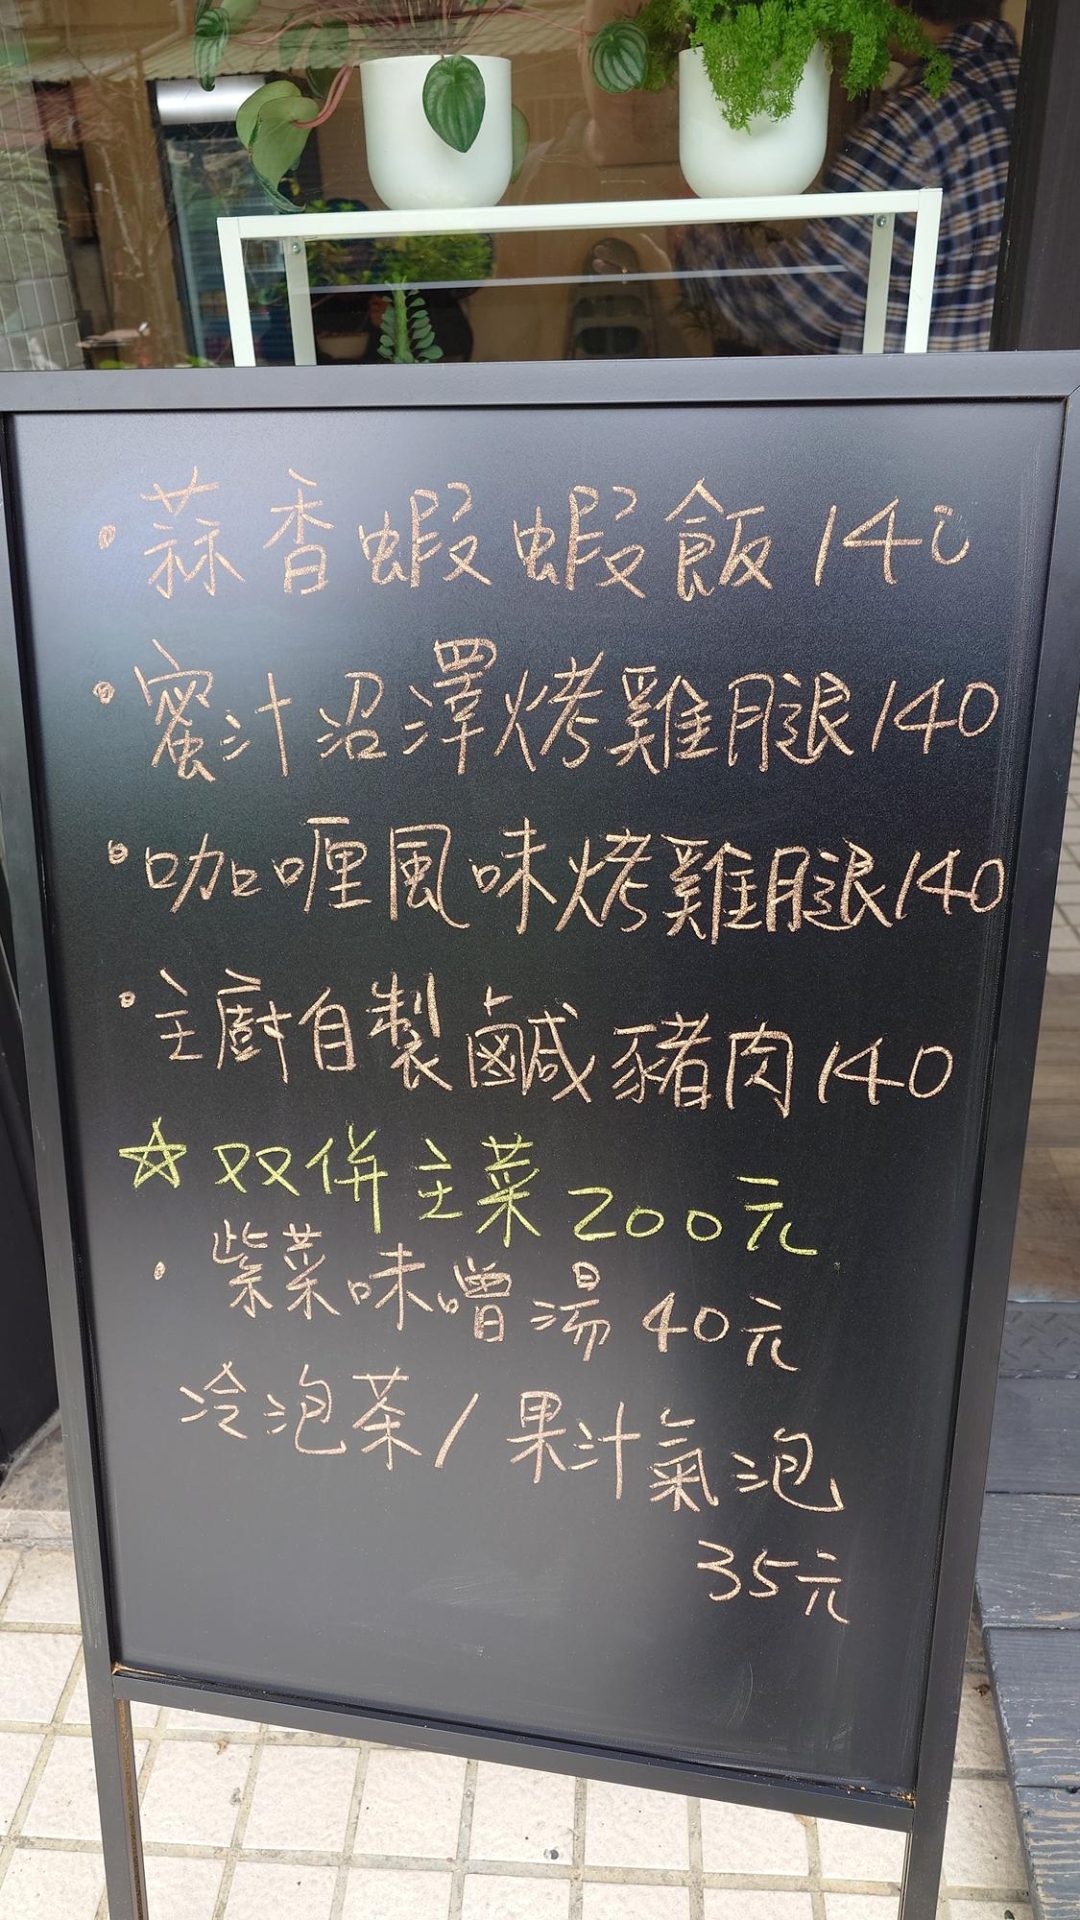 蒜香蝦蝦飯140
蜜汁沼澤烤雞腿140
咖喱風味烤雞腿140
主廚自製鹹豬肉140
☆双併主菜200元
紫菜味噌湯40元
冷泡茶/果汁氣泡
35元